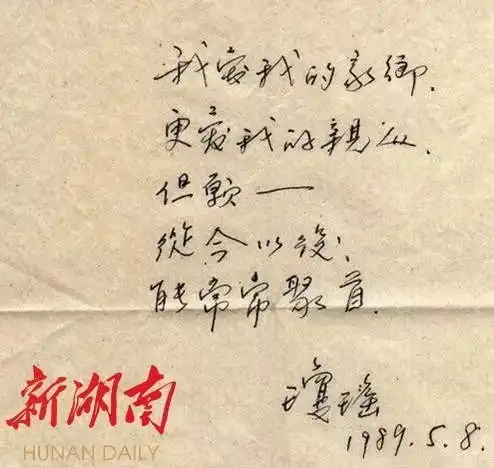 我愛我的家鄉.
更愛我的親人.
但願——
從今以後,
能常常聚首.
瓊瑤
1989.5.8.
新湖南
HUNAN DAILY